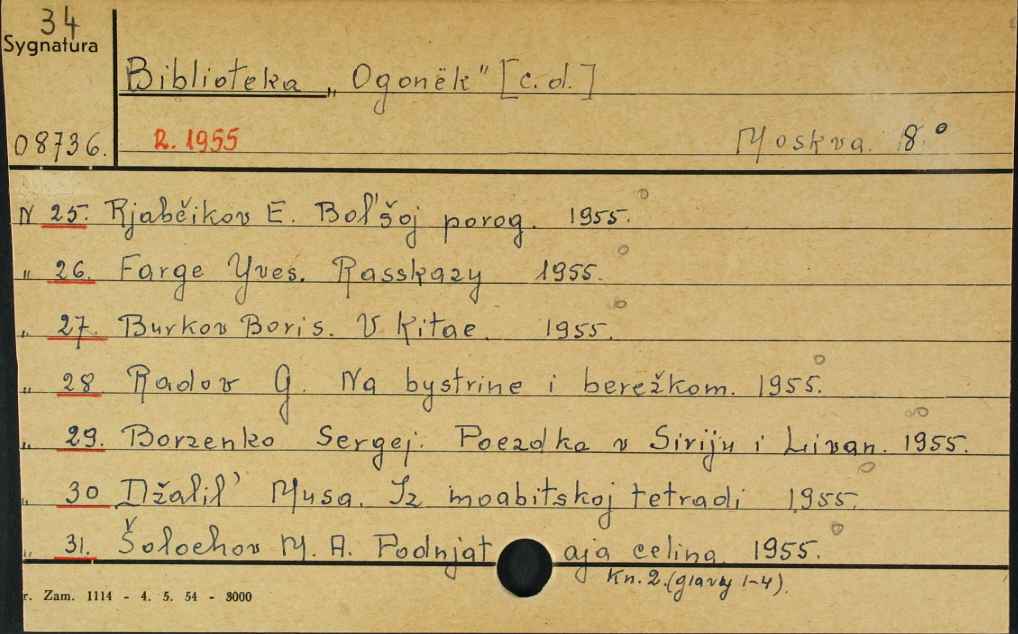 34
Sygnatura
Biblioteka „Ogonëk" [c.d.]
08736. R. 1955 Moskva. 8°
N 25. Rjabčikov E. Bol'šoj porog. 1955.
„ 26. Farge Yves. Rasskazy 1955.
„ 27. Burkov Boris. V Kitae. 1955.
„ 28 Radov G. Na bystrine i berežkom. 1955.
„ 29. Borzenko Sergej. Poezdka v Siriju i Livan. 1955.
„ 30 Džalil' Musa. Iz moabitskoj tetradi 1955.
„ 31. Šolochov M. A. Podnjat aja celina. 1955.
Kn. 2. (glavy 1-4).
r. Zam. 1114 - 4. 5. 54 - 3000